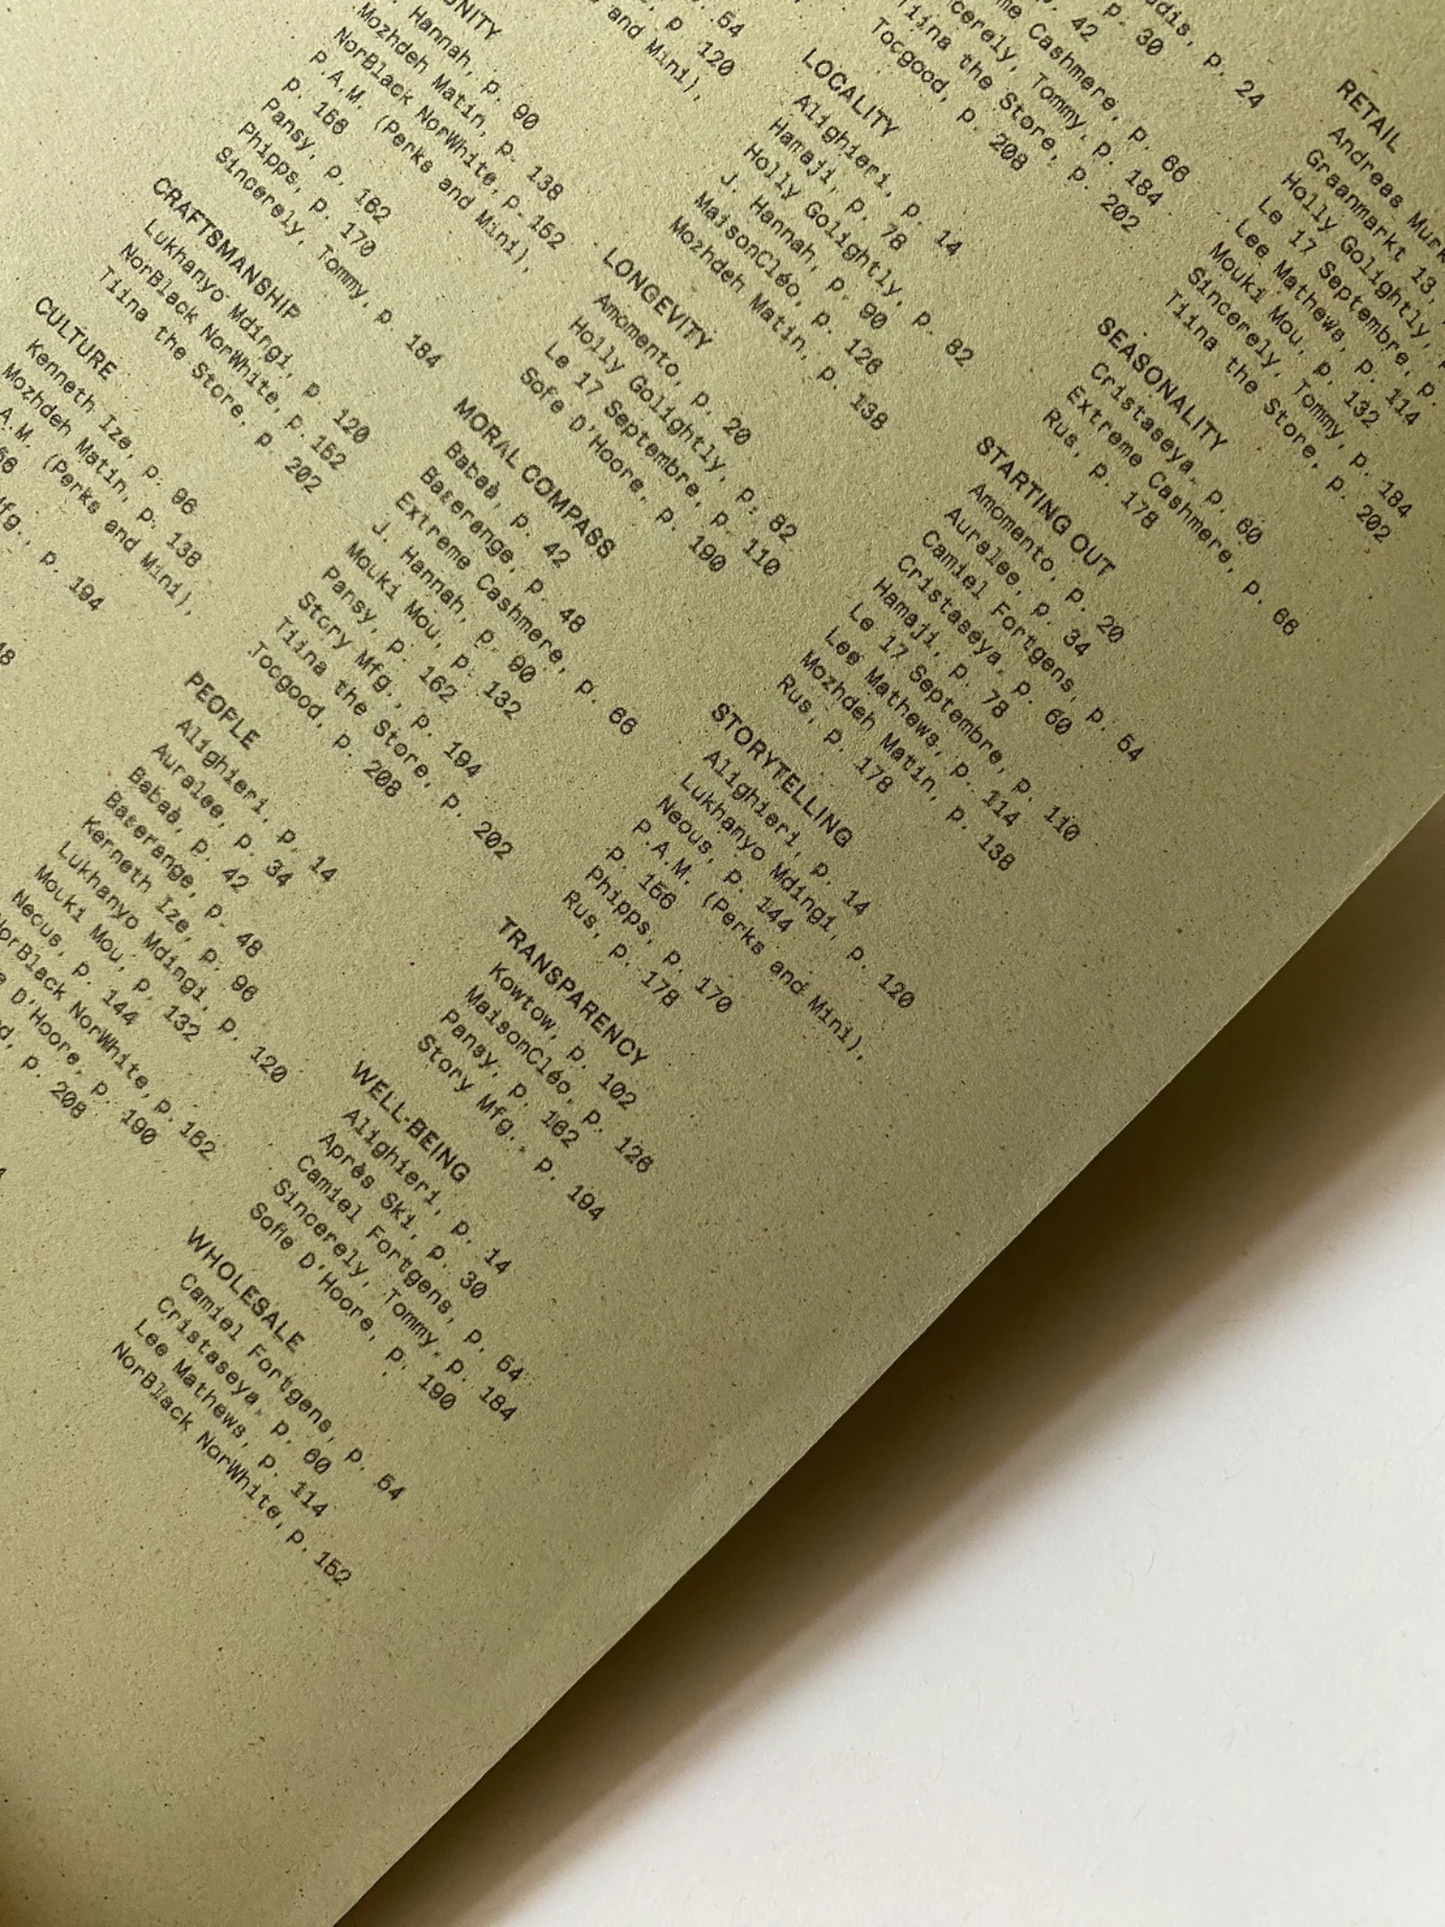 Hannah, p. 90
Mozhdeh Matin, p. 138
NorBlack NorWhite, p. 152
P.A.M. (Perks and Mini),
p. 156
Pansy, p. 162
Phipps, p. 170
Sincerely, Tommy, p. 184
CRAFTSMANSHIP
Lukhanyo Mdingi, p. 120
NorBlack NorWhite, p. 152
Tiina the Store, p. 202
CULTURE
Kenneth Ize, p. 96
Mozhdeh Matin, p. 138
A.M. (Perks and Mini),
p. 194
54
p. 120
and Mini),
LOCALITY
Alighieri, p. 14
Hamaji, p. 78
Holly Golightly, p. 82
J. Hannah, p. 90
MaisonCléo, p. 126
Mozhdeh Matin, p. 138
LONGEVITY
Amomento, p. 20
Holly Golightly, p. 82
Le 17 Septembre, p. 110
Sofie D'Hoore, p. 190
MORAL COMPASS
Babaà, p. 42
Baserange, p. 48
Extreme Cashmere, p. 66
J. Hannah, p. 90
Mouki Mou, p. 132
Pansy, p. 162
Story Mfg., p. 194
Tiina the Store, p. 202
Tocgood, p. 208
PEOPLE
Alighieri, p. 14
Auralee, p. 34
Babaà, p. 42
Baserange, p. 48
Kenneth Ize, p. 96
Lukhanyo Mdingi, p. 120
Mouki Mou, p. 132
Neous, p. 144
NorBlack NorWhite, p. 152
D'Hoore, p. 190
p. 208
p. 24
p. 30
p. 42
Cashmere, p. 66
Tommy, p. 184
Tiina the Store, p. 202
Tocgood, p. 208
RETAIL
Andreas
Graanmarkt 13,
Holly Golightly,
Le 17 Septembre,
Lee Mathews, p. 114
Mouki Mou, p. 132
Sincerely, Tommy, p. 184
Tiina the Store, p. 202
SEASONALITY
Cristaseya, p. 60
Extreme Cashmere, p. 66
Rus, p. 178
STARTING OUT
Amomento, p. 20
Auralee, p. 34
Camiel Fortgens, p. 54
Cristaseya, p. 60
Hamaji, p. 78
Le 17 Septembre, p. 110
Lee Mathews, p. 114
Mozhdeh Matin, p. 138
Rus, p. 178
STORYTELLING
Alighieri, p. 14
Lukhanyo Mdingi, p. 120
Neous, p. 144
P.A.M. (Perks and Mini),
p. 156
Phipps, p. 170
Rus, p. 178
TRANSPARENCY
Kowtow, p. 102
MaisonCléo, p. 126
Pansy, p. 162
Story Mfg., p. 194
WELL-BEING
Alighieri, p. 14
Après Ski, p. 30
Camiel Fortgens, p. 54
Sincerely, Tommy, p. 184
Sofie D'Hoore, p. 190
WHOLESALE
Camiel Fortgens, p. 54
Cristaseya, p. 60
Lee Mathews, p. 114
NorBlack NorWhite, p. 152